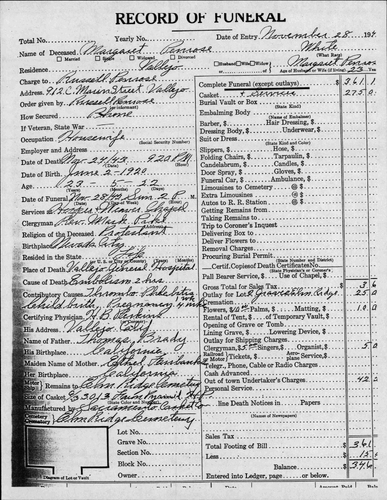 RECORD OF FUNERAL
Total No.
Yearly No.
Date of Entry November 28 194
Name of Deceased Margaret Penrose
White
(What Race)
Married
Single
Widowed
Divorced
Residence Vallejo
Husband Widow
Margaret Penrose
Age of Husband or Wife (if living) 23 Yrs
Charge to Russell Penrose
Address 912 C. Marin Street, Vallejo
Order given by Russell Penrose
How Secured Phone
If Veteran, State War
Occupation Housewife
Employer and Address
Date of Death Nov 24/43 9 20 P.M.
Date of Birth June 2-1920
Age 23 - 5 - 22
(Years) (Months) (Days)
Funeral Date Nov 28/43 Sun 2 P.M.
Services at Hooper & Weaver Chapel
Clergyman Rev. Parks
Religion of the Deceased Protestant
Birthplace Nevada City
Resided in the State
Place of Death Vallejo General Hospital
Cause of Death Embolism 2 hrs.
Contributory Causes Thrombo Phlebitis
Certifying Physician H.B. Perkins
His Address Vallejo Calif
Name of Father Thomas Brady
His Birthplace California
Maiden Name of Mother
Her Birthplace California
Motor
Ship
Remains to Elm Ridge Cemetery
Size of Casket 6/3
Manufactured by Sacramento Casket Co
Cemetery
Crematory
Elm Ridge Cemetery
Lot No.
Grave No.
Section No.
Block No.
Owner
Diagram of Lot or Vault
Complete Funeral (except outlays) $ 361
Casket & Service 275 0
Burial Vault or Box
(State Kind)
Embalming Body
(Name of Embalmer)
Barber, $ Hair Dressing, $
Dressing Body, $ Underwear, $
Suit or Dress
(State Kind and Color)
Slippers, $ Hose, $
Folding Chairs, $ Tarpaulin, $
Candelabrum, $ Candles, $
Door Spray, $ Gloves, $
Funeral Car, $ Ambulance, $
Limousines to Cemetery @ $
Extra Limousines @ $
Autos to R. R. Station @ $
Getting Remains from
Taking Remains to
Trip to Coroner's Inquest
Delivering Box to
Deliver Flowers to
Removal Charges
Procuring Burial Permit
Certf. Copies of Death Certificates
(State Physician's or Coroner's)
Pall Bearer Service Use of Chapel, $
Gross Total for Sales Tax $ 36
Outlay for Lot 25 0
Cremation
Flowers, $10 Palms, $ Matting, $ 10 0
Rental of Tent, $ of Temporary Vault, $
Opening of Grave or Tomb
Lining Grave, $ Lowering Device, $
Outlay for Shipping Charges
Clergyman, $5 Singers, $ Organist, $ 5 0
Railroad
Motor
Tickets, $
Aero-
Plane
Service, $
Telegr., Phone, Cable or Radio Charges
Cash Advanced
Out of town Undertaker's Charges 42
Personal Service
line Death Notices in Papers
(Names of Newspapers)
Sales Tax
Total Footing of Bill $ 361
Less $ 15
Balance $ 346
Entered into Ledger, page or below.